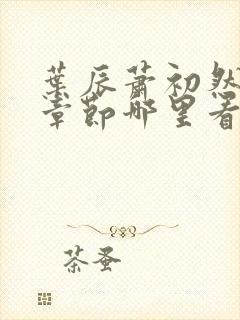 叶辰萧初然
章节哪里看
茶蚤